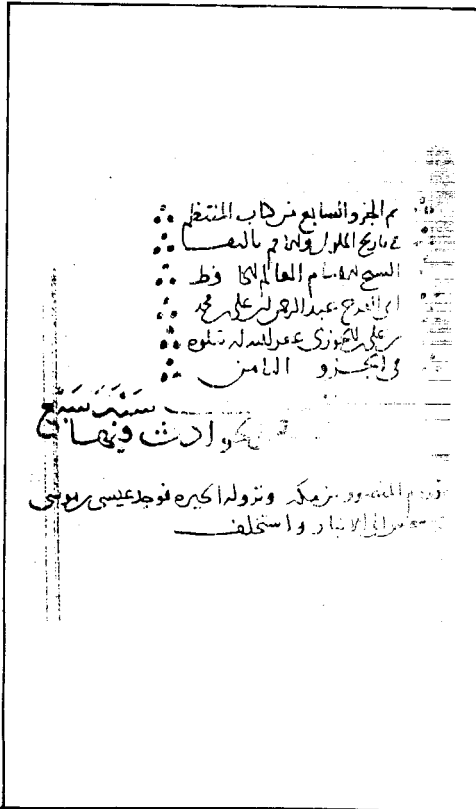 تم الجزو السابع من كتاب المنتظم
في تاريخ الملوك والامم تاليف
الشيخ الامام العالم الحافظ
ابي الفرج عبد الرحمن بن علي بن محمد
بن علي الجوزي غفر الله له يتلوه
في الجزو الثامن
سنة سبع
الحوادث فيها
قدوم المنصور من مكة ونزوله الحيره فوجد عيسى بن موسى
الى الانبار واستخلف